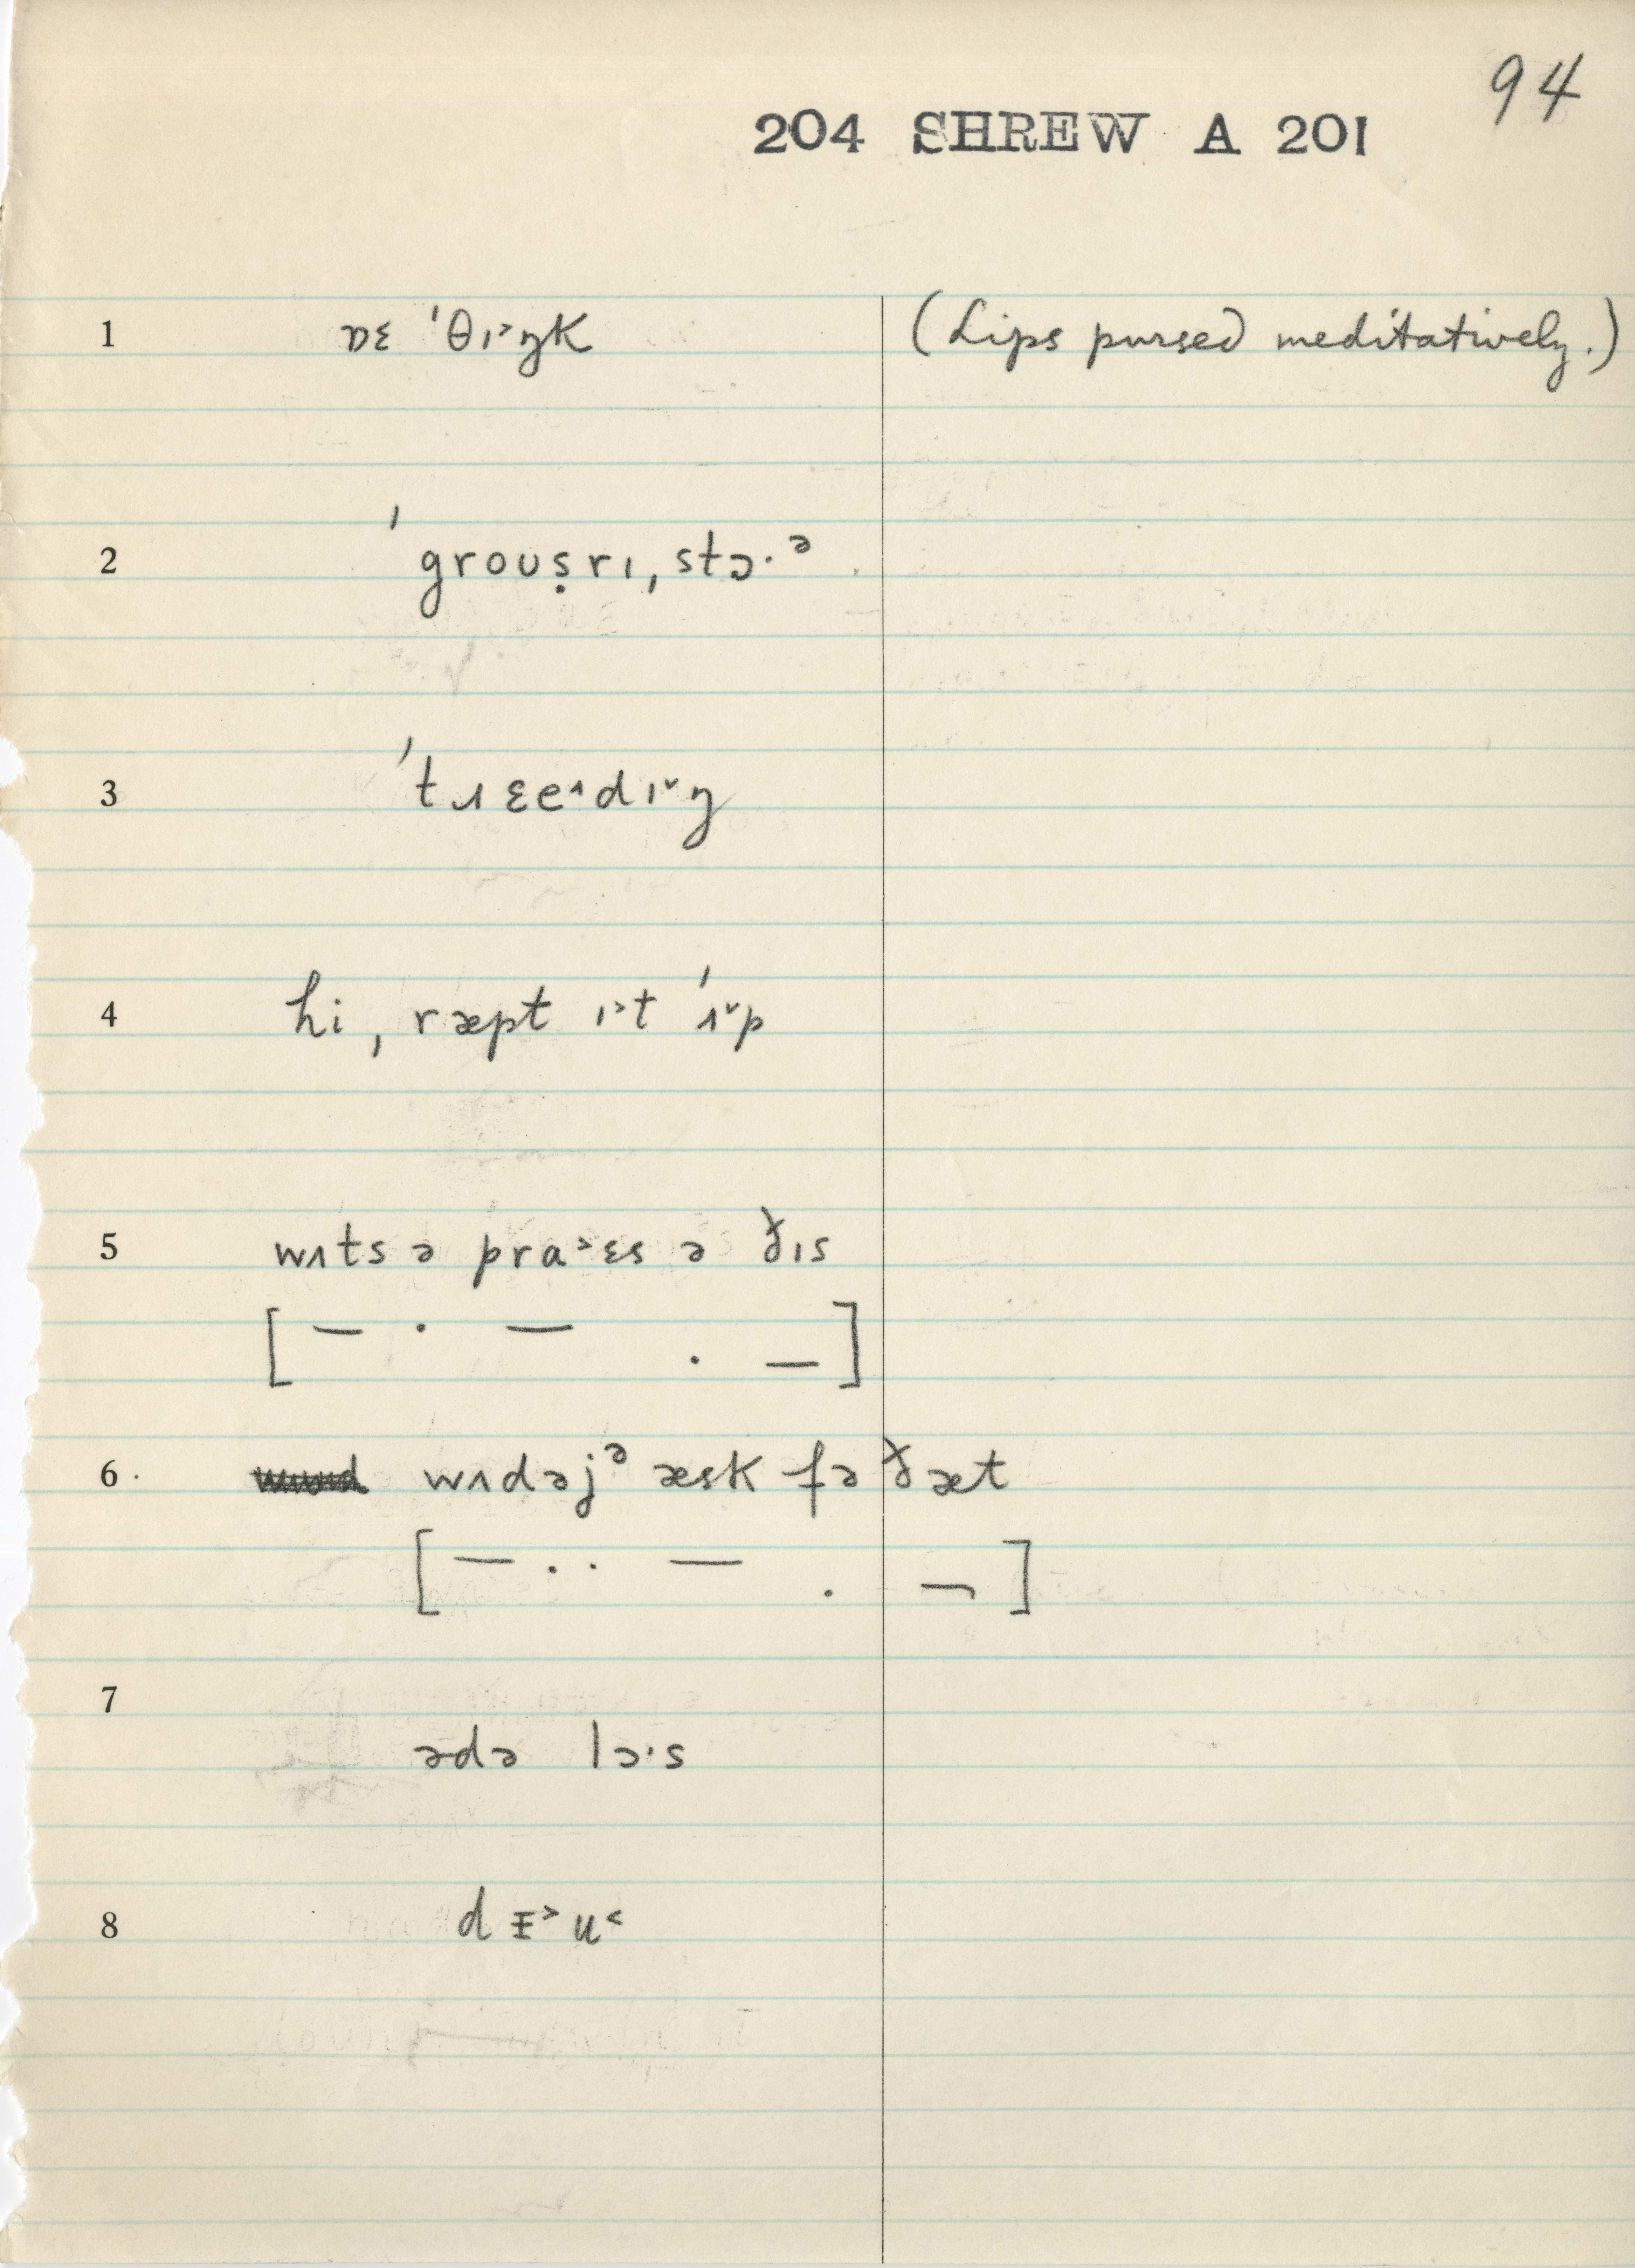 94
204 SHREW A 201
1 ɒɛ ˈθɪ˃ŋk (Lips pursed meditatively.)
2 ˈgroʊṣrɪˌstɔ·ᵊ
3 ˈtɹɛe˄dɪ˅ŋ
4 hiˌræpt ɪ˃t ˈʌ˅p
5 wʌts ə pra˃ɛs ə ðɪs
[— · — . —]
6 wʌdəjᵊ æsk fə ðæt
[— · · — . ¬]
7
ədə lɔ·s
8 d ᵻ˃ u˂